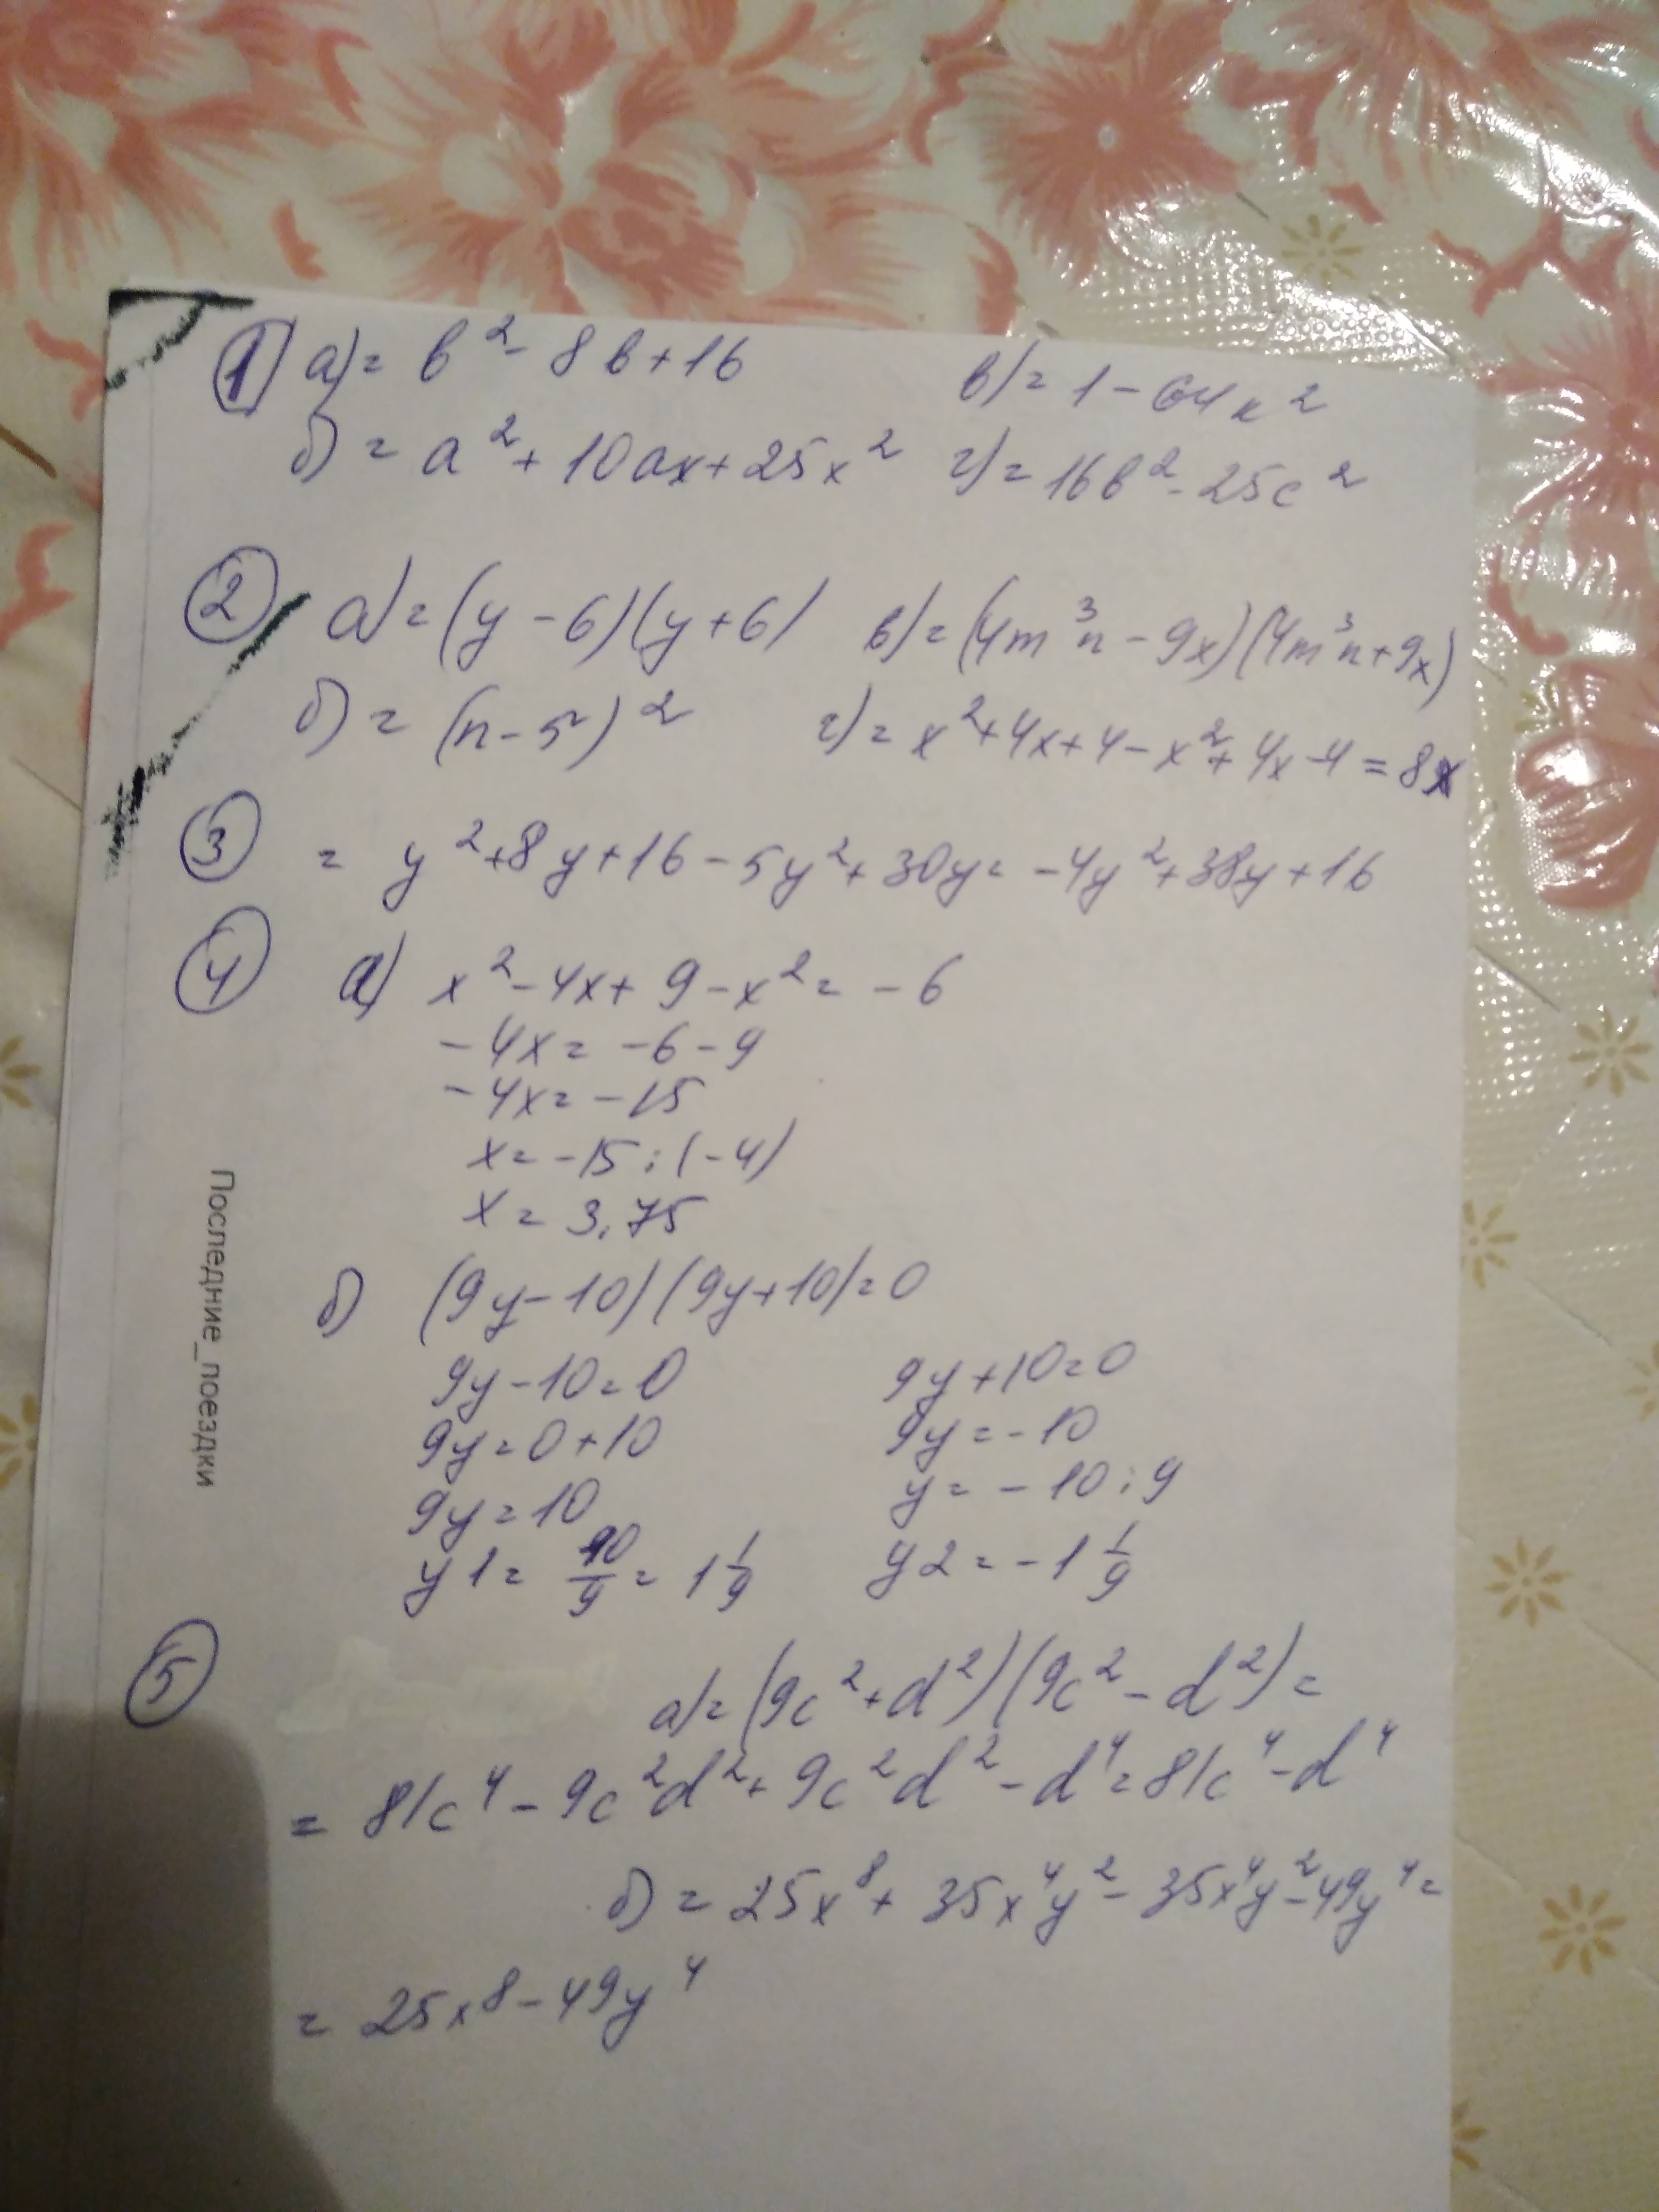 1 а) = b² - 8b + 16 в) = 1 - 64x²
б) = a² + 10ax + 25x² г) = 16b² - 25c²
2 а) = (y - 6)(y + 6) в) = (4m³n - 9x)(4m³n + 9x)
б) = (n - 5)² г) = x² + 4x + 4 - x² + 4x - 4 = 8x
3 = y² + 8y + 16 - 5y² + 30y = -4y² + 38y + 16
4 а) x² - 4x + 9 - x² = -6
-4x = -6 - 9
-4x = -15
x = -15 : (-4)
x = 3,75
б) (9y - 10)(9y + 10) = 0
9y - 10 = 0 9y + 10 = 0
9y = 0 + 10 9y = -10
9y = 10 y = -10 : 9
y1 = 10/9 = 1 1/9 y2 = -1 1/9
5 а) = (9c² + d²)(9c² - d²) =
= 81c⁴ - 9c²d² + 9c²d² - d⁴ = 81c⁴ - d⁴
б) = 25x⁸ + 35x⁴y² - 35x⁴y² - 49y⁴ =
= 25x⁸ - 49y⁴
Последние_поездки